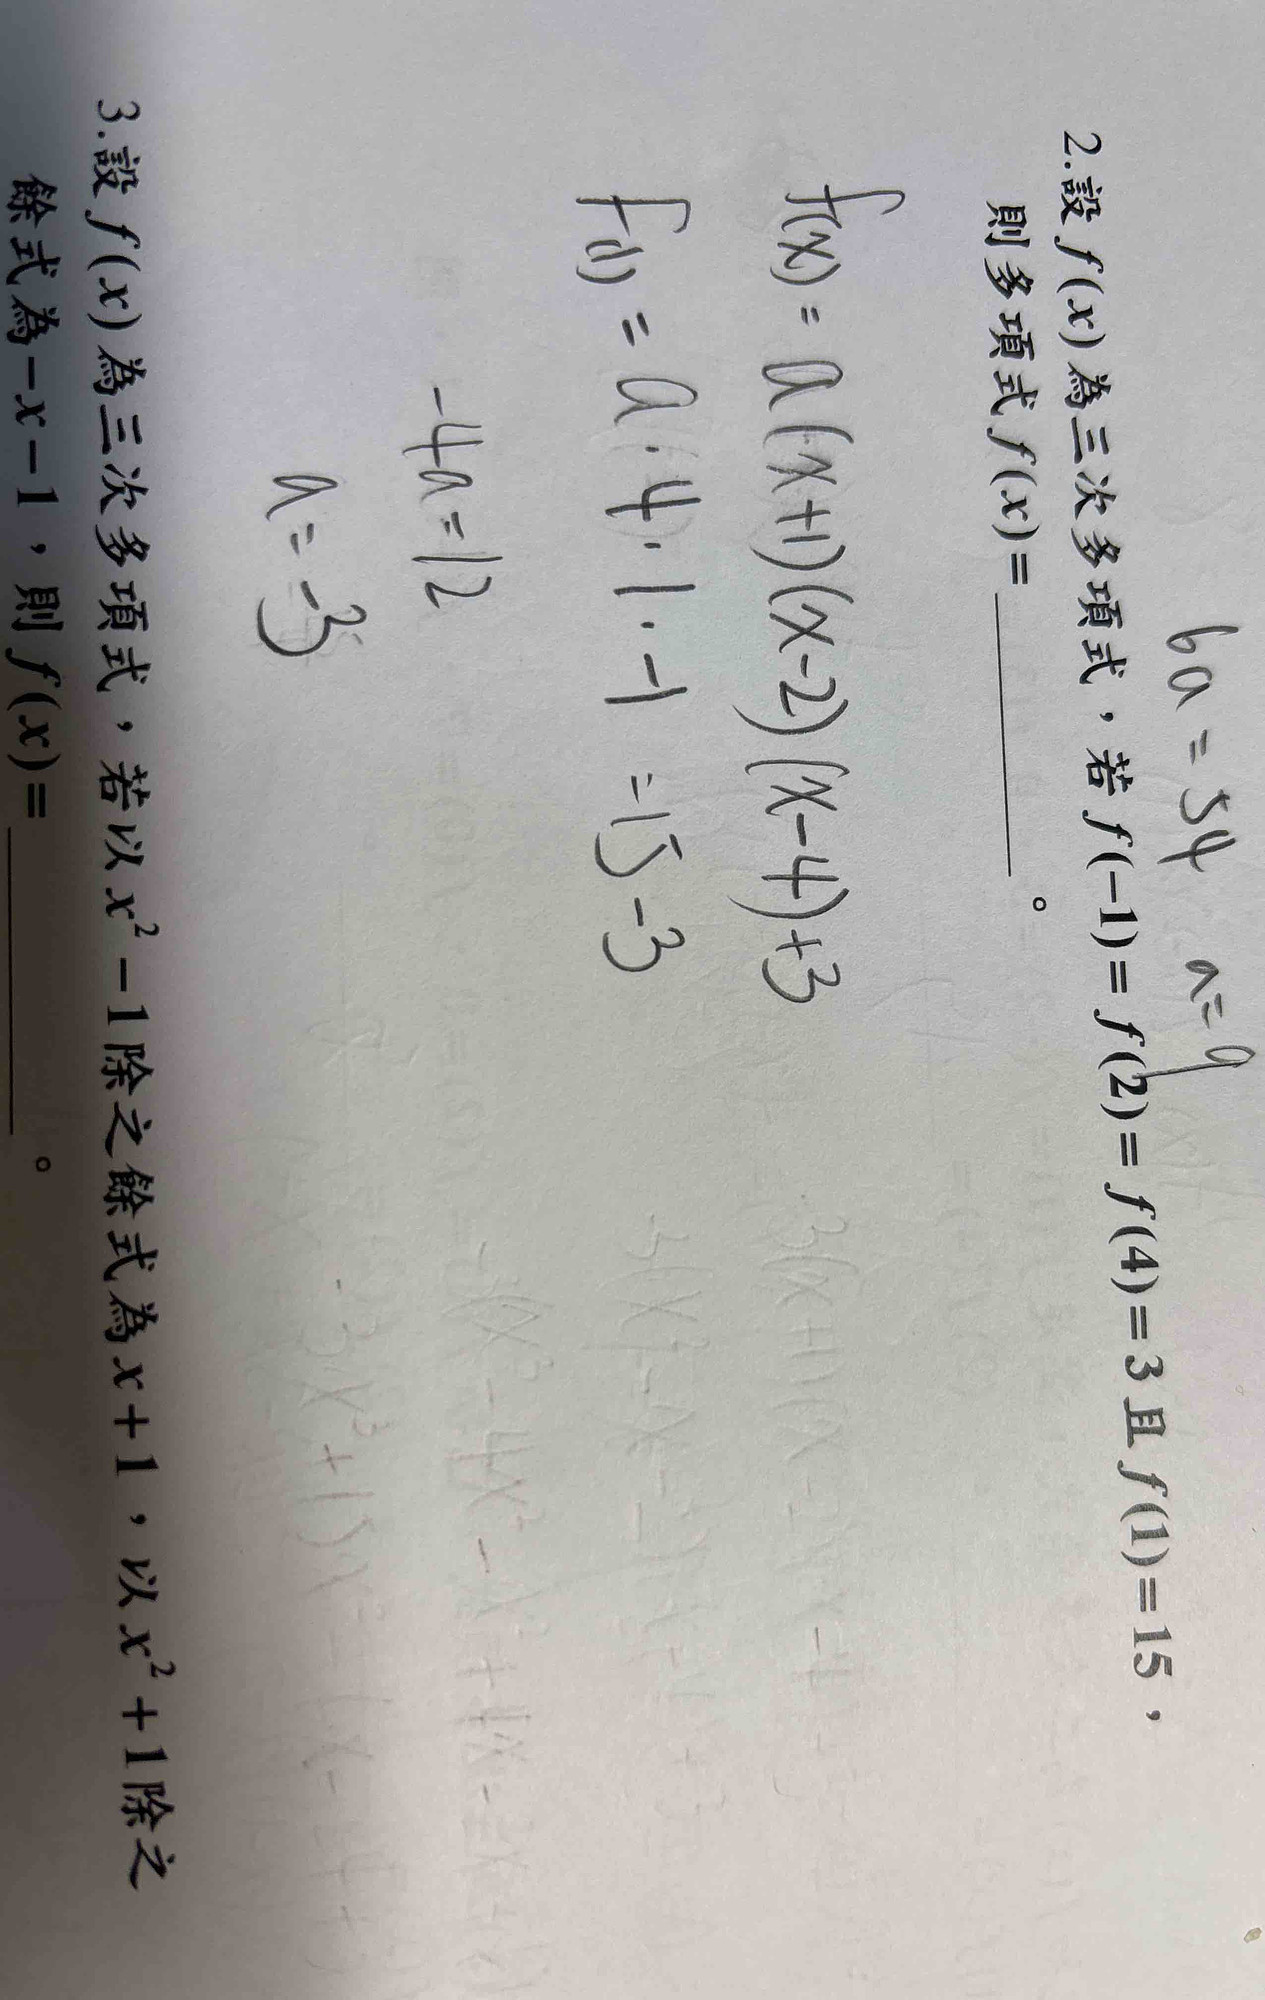 6a = 54 a = 9
2.設 f(x) 為三次多項式，若 f(-1) = f(2) = f(4) = 3 且 f(1) = 15，
則多項式 f(x) = ________。
f(x) = a(x+1)(x-2)(x-4)+3
f(1) = a·4·1·-1 = 15-3
-4a = 12
a = -3
3.設 f(x) 為三次多項式，若以 x² - 1 除之餘式為 x + 1，以 x² + 1 除之
餘式為 - x - 1，則 f(x) = ________。